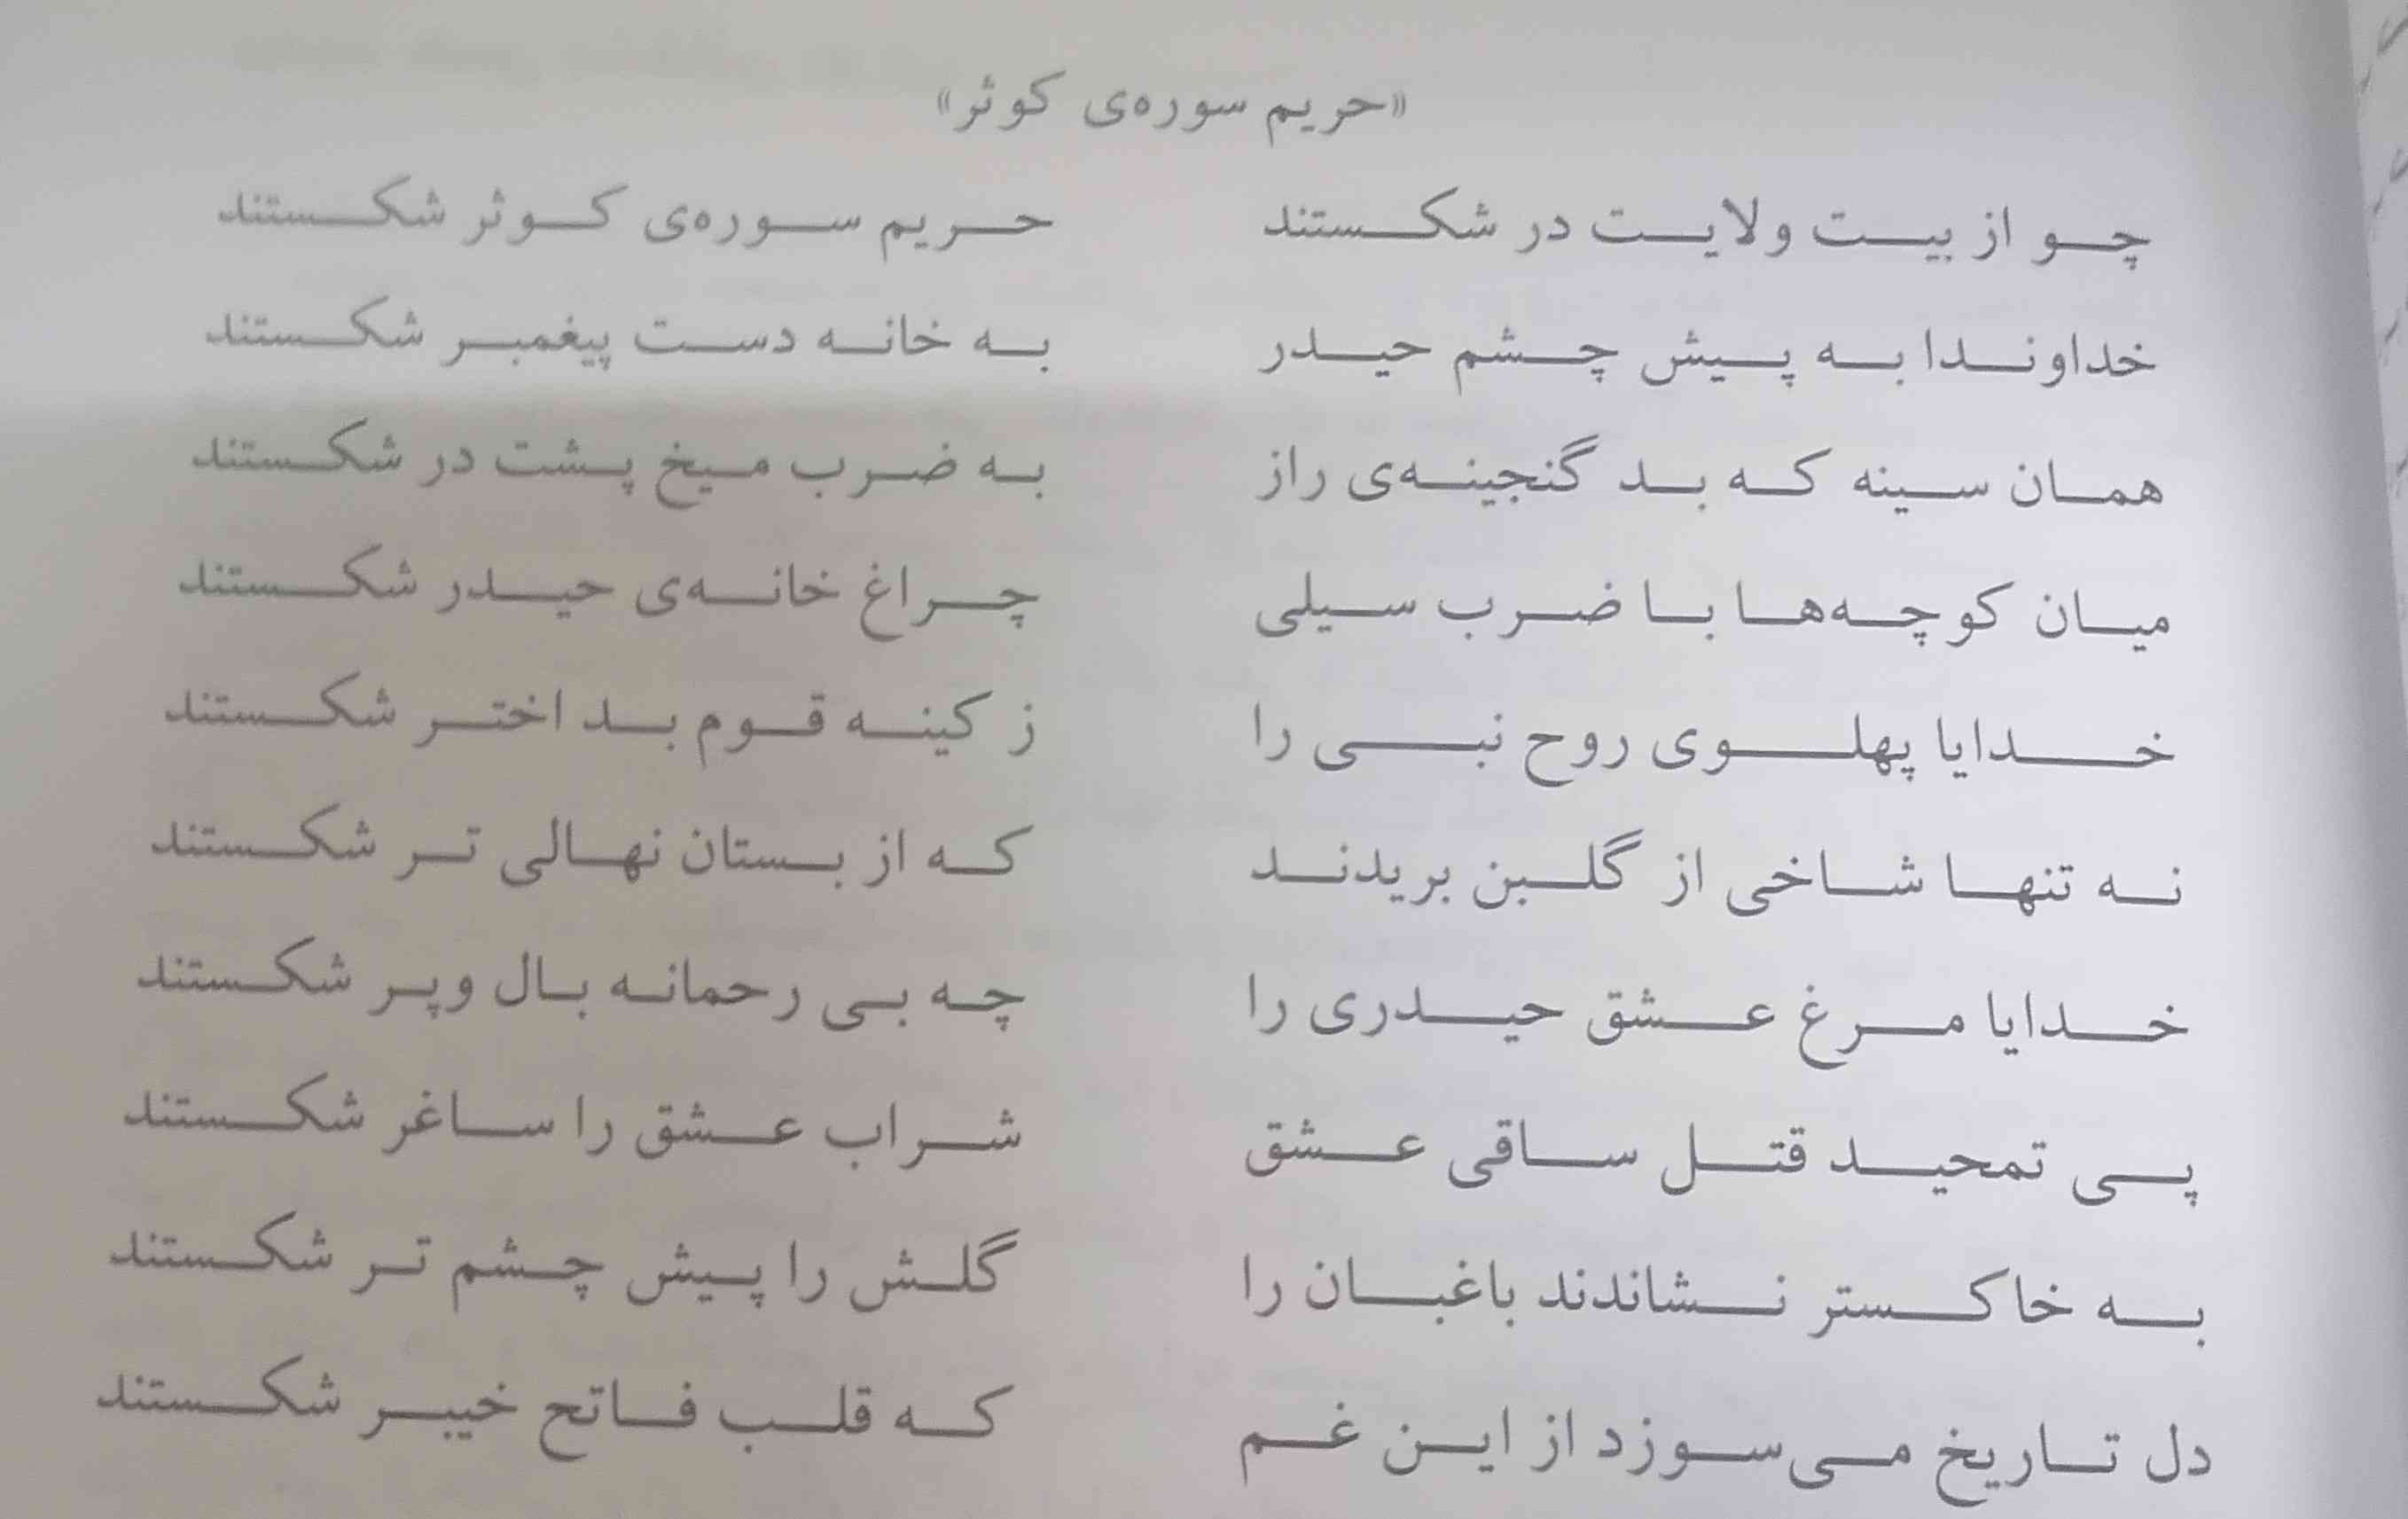 «حریم سوره‌ی کوثر»
چو از بیت ولایت در شکستند حریم سوره‌ی کوثر شکستند
خداوندا به پیش چشم حیدر به خانه دست پیغمبر شکستند
همان سینه که بد گنجینه‌ی راز به ضرب میخ پشت در شکستند
میان کوچه‌ها با ضرب سیلی چراغ خانه‌ی حیدر شکستند
خدایا پهلوی روح نبی را ز کینه قوم بد اختر شکستند
نه تنها شاخی از گلبن بریدند که از بستان نهالی تر شکستند
خدایا مرغ عشق حیدری را چه بی رحمانه بال وپر شکستند
پی تمحید قتل ساقی عشق شراب عشق را ساغر شکستند
به خاکستر نشاندند باغبان را گلش را پیش چشم تر شکستند
دل تاریخ می‌سوزد از این غم که قلب فاتح خیبر شکستند